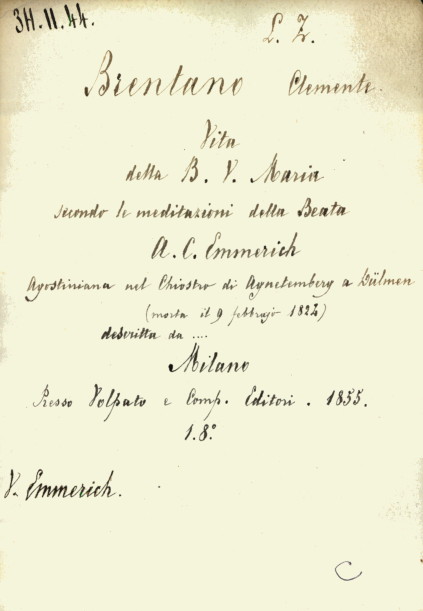 3H.II.44.
L. Z.
Brentano Clemente.
Vita
della B. V. Maria
secondo le meditazioni della Beata
A. C. Emmerich
Agostiniana nel Chiostro di Agnetemberg a Dülmen
(morta il 9 febbrajo 1824)
descritta da ....
Milano
Presso Volpato e Comp. Editori. 1855.
1.8.º
V. Emmerich.
C